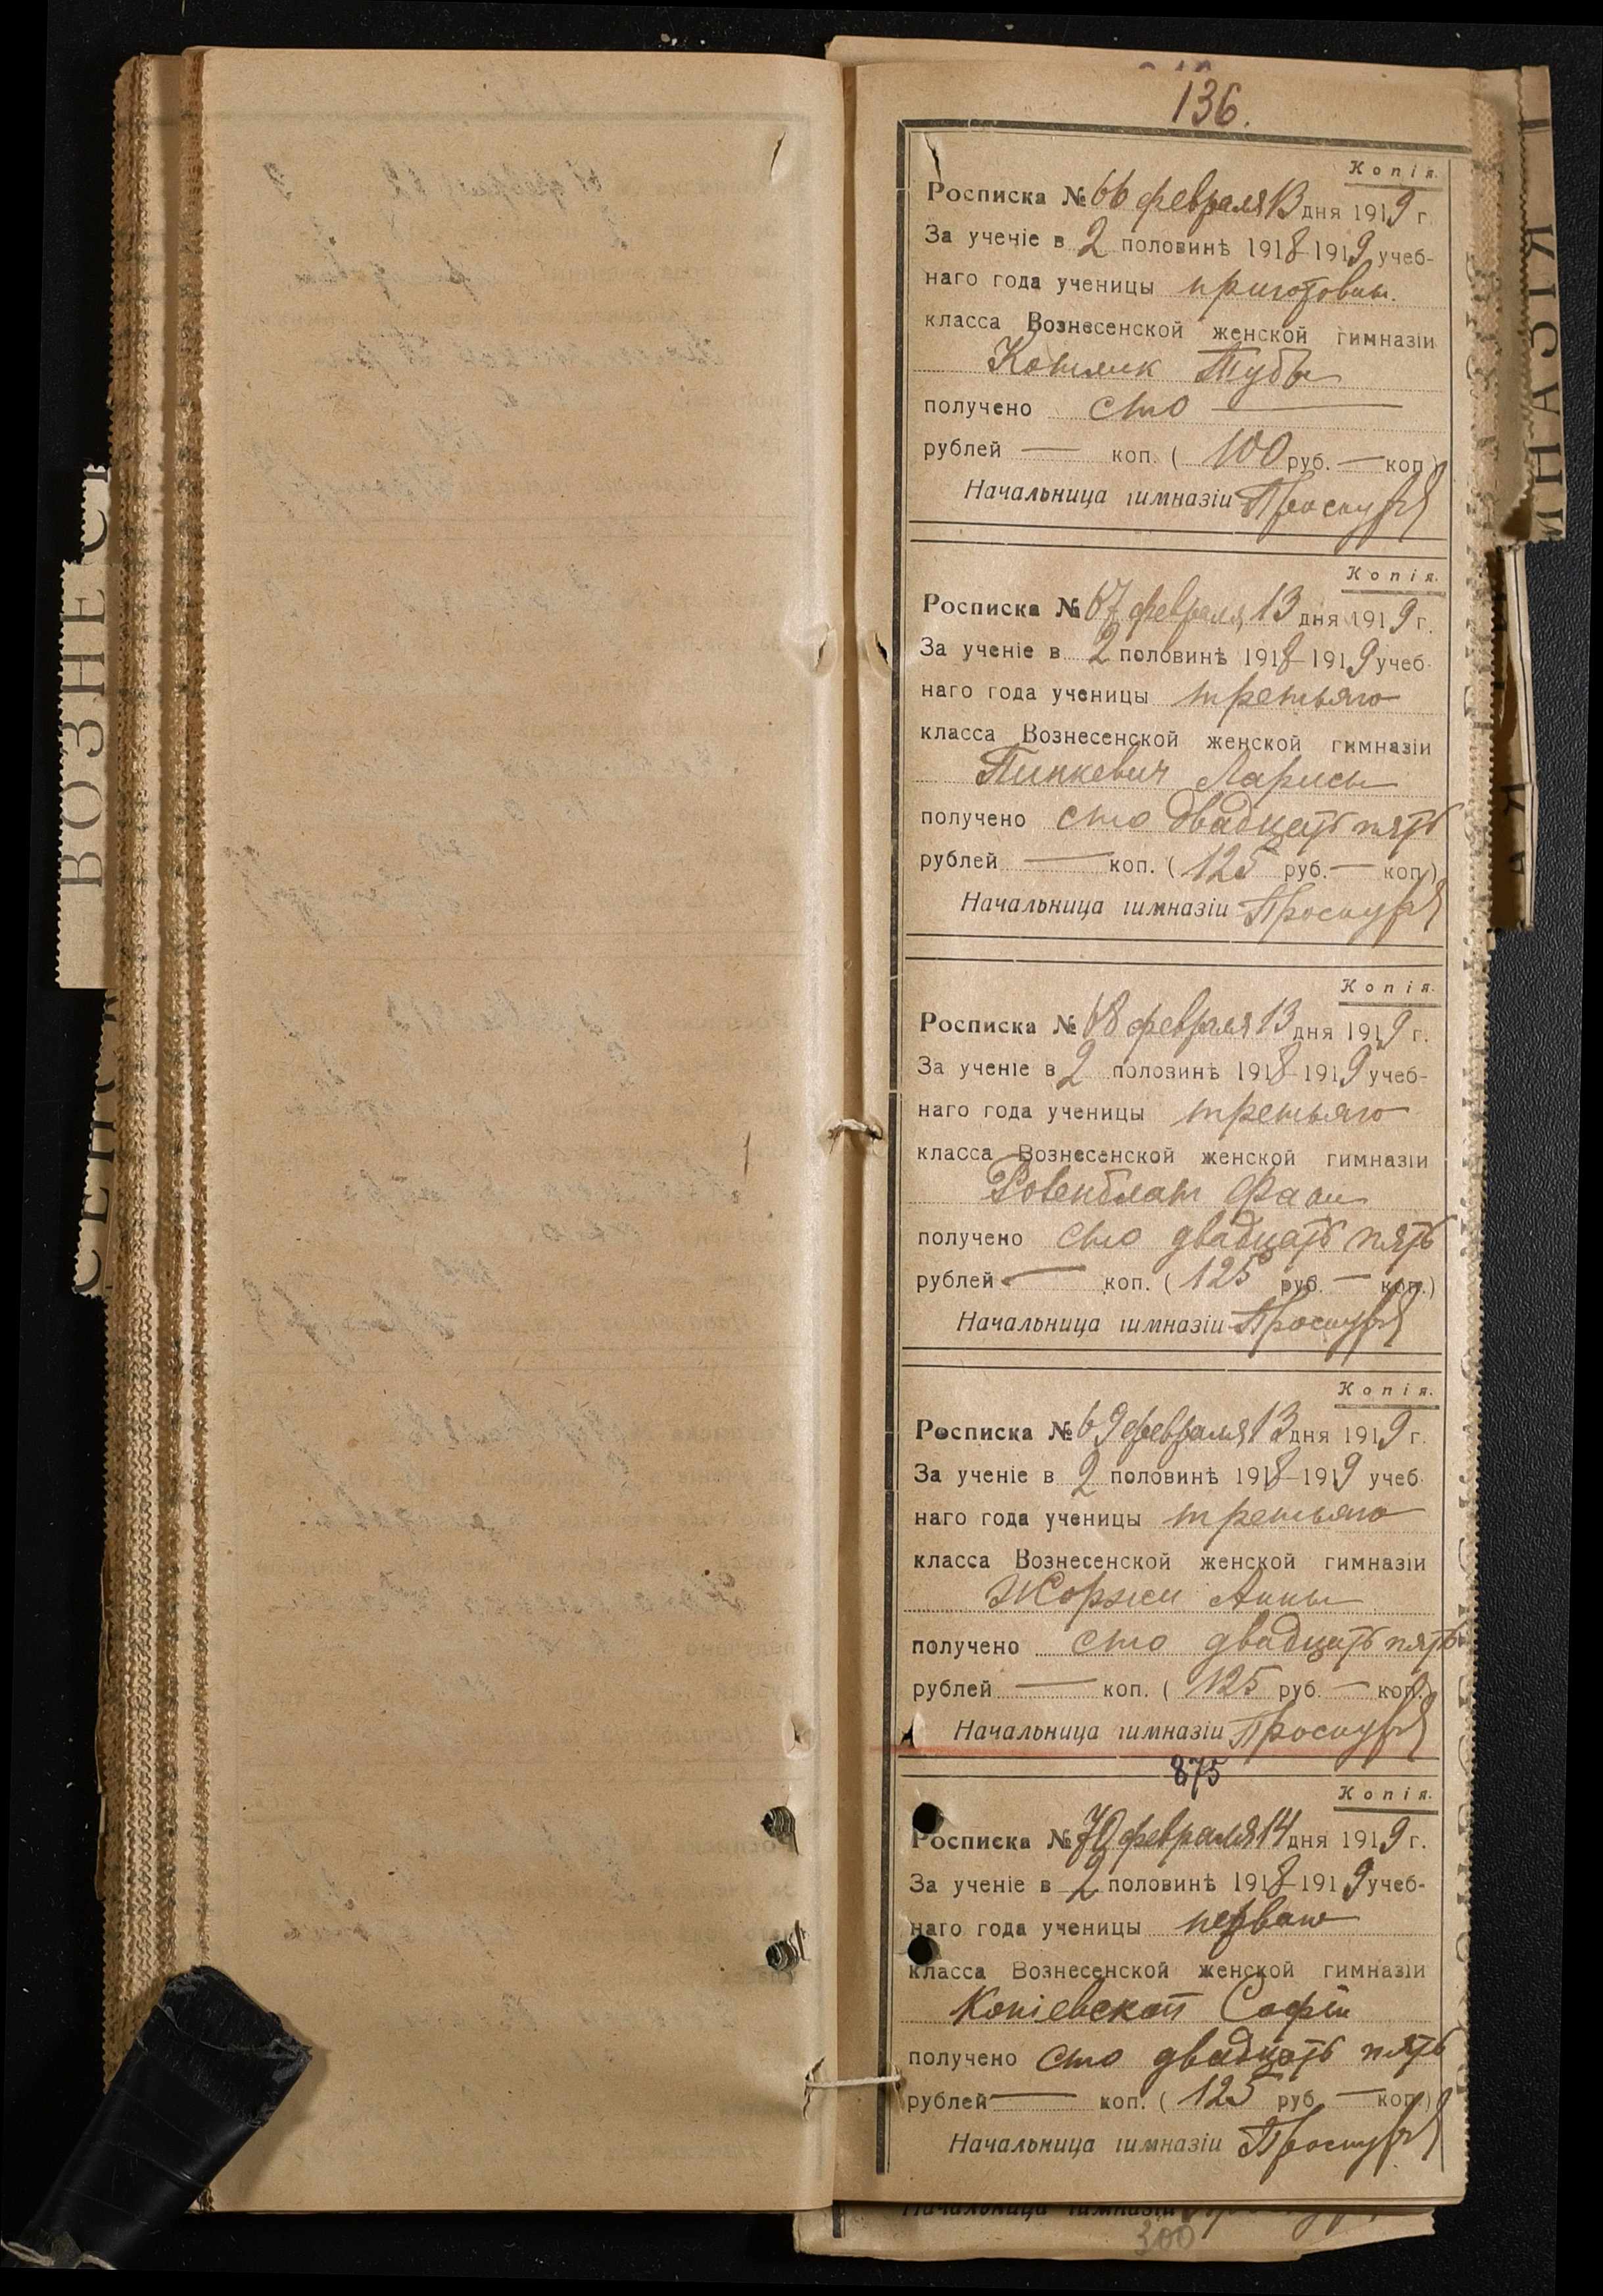 136.
Копія.
Росписка № 66 февраля 13 дня 1919 г.
За ученіе в 2 половинѣ 1918-1919 учеб-
наго года ученицы приготовит.
класса Вознесенской женской гимназіи
Котлик Тубы
получено сто
рублей — коп. ( 100 руб. — коп.)
Начальница гимназіи
Копія.
Росписка № 67 февраля 13 дня 1919 г.
За ученіе в 2 половинѣ 1918-1919 учеб-
наго года ученицы третьяго
класса Вознесенской женской гимназіи
Пинкевич Ларисы
получено сто двадцать пять
рублей — коп. ( 125 руб. — коп.)
Начальница гимназіи
Копія.
Росписка № 68 февраля 13 дня 1919 г.
За ученіе в 2 половинѣ 1918-1919 учеб-
наго года ученицы третьяго
класса Вознесенской женской гимназіи
Розенблат
получено сто двадцать пять
рублей — коп. ( 125 руб. — коп.)
Начальница гимназіи
Копія.
Росписка № 69 февраля 13 дня 1919 г.
За ученіе в 2 половинѣ 1918-1919 учеб-
наго года ученицы третьяго
класса Вознесенской женской гимназіи
Жоржи Анны
получено сто двадцать пять
рублей — коп. ( 125 руб. — коп.)
Начальница гимназіи
875
Копія.
Росписка № 70 февраля 14 дня 1919 г.
За ученіе в 2 половинѣ 1918-1919 учеб-
наго года ученицы перваго
класса Вознесенской женской гимназіи
Копіевской Софіи
получено сто двадцать пять
рублей — коп. ( 125 руб. — коп.)
Начальница гимназіи
Начальница гимназіи
300
ВОЗНЕС